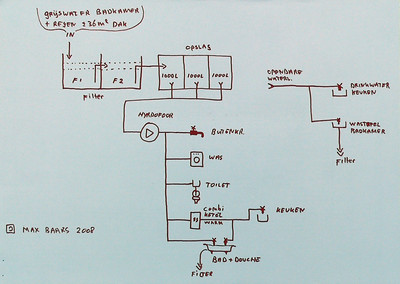 grijswater badkamer
+ regen ± 36 m² dak
IN
OPSLAG
F1
F2
1000L
1000L
1000L
filter
OPENBARE
WATERL.
DRINKWATER
KEUKEN
WASTAFEL
BADKAMER
filter
HYDROFOOR
BUITENKR.
WAS
TOILET
COMBI
KETEL
WARM
KEUKEN
BAD + DOUCHE
FILTER
MAX BAARS 2008